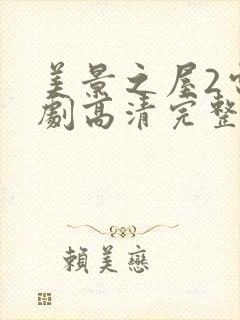 美景之屋2
劇高清完整
賴美戀